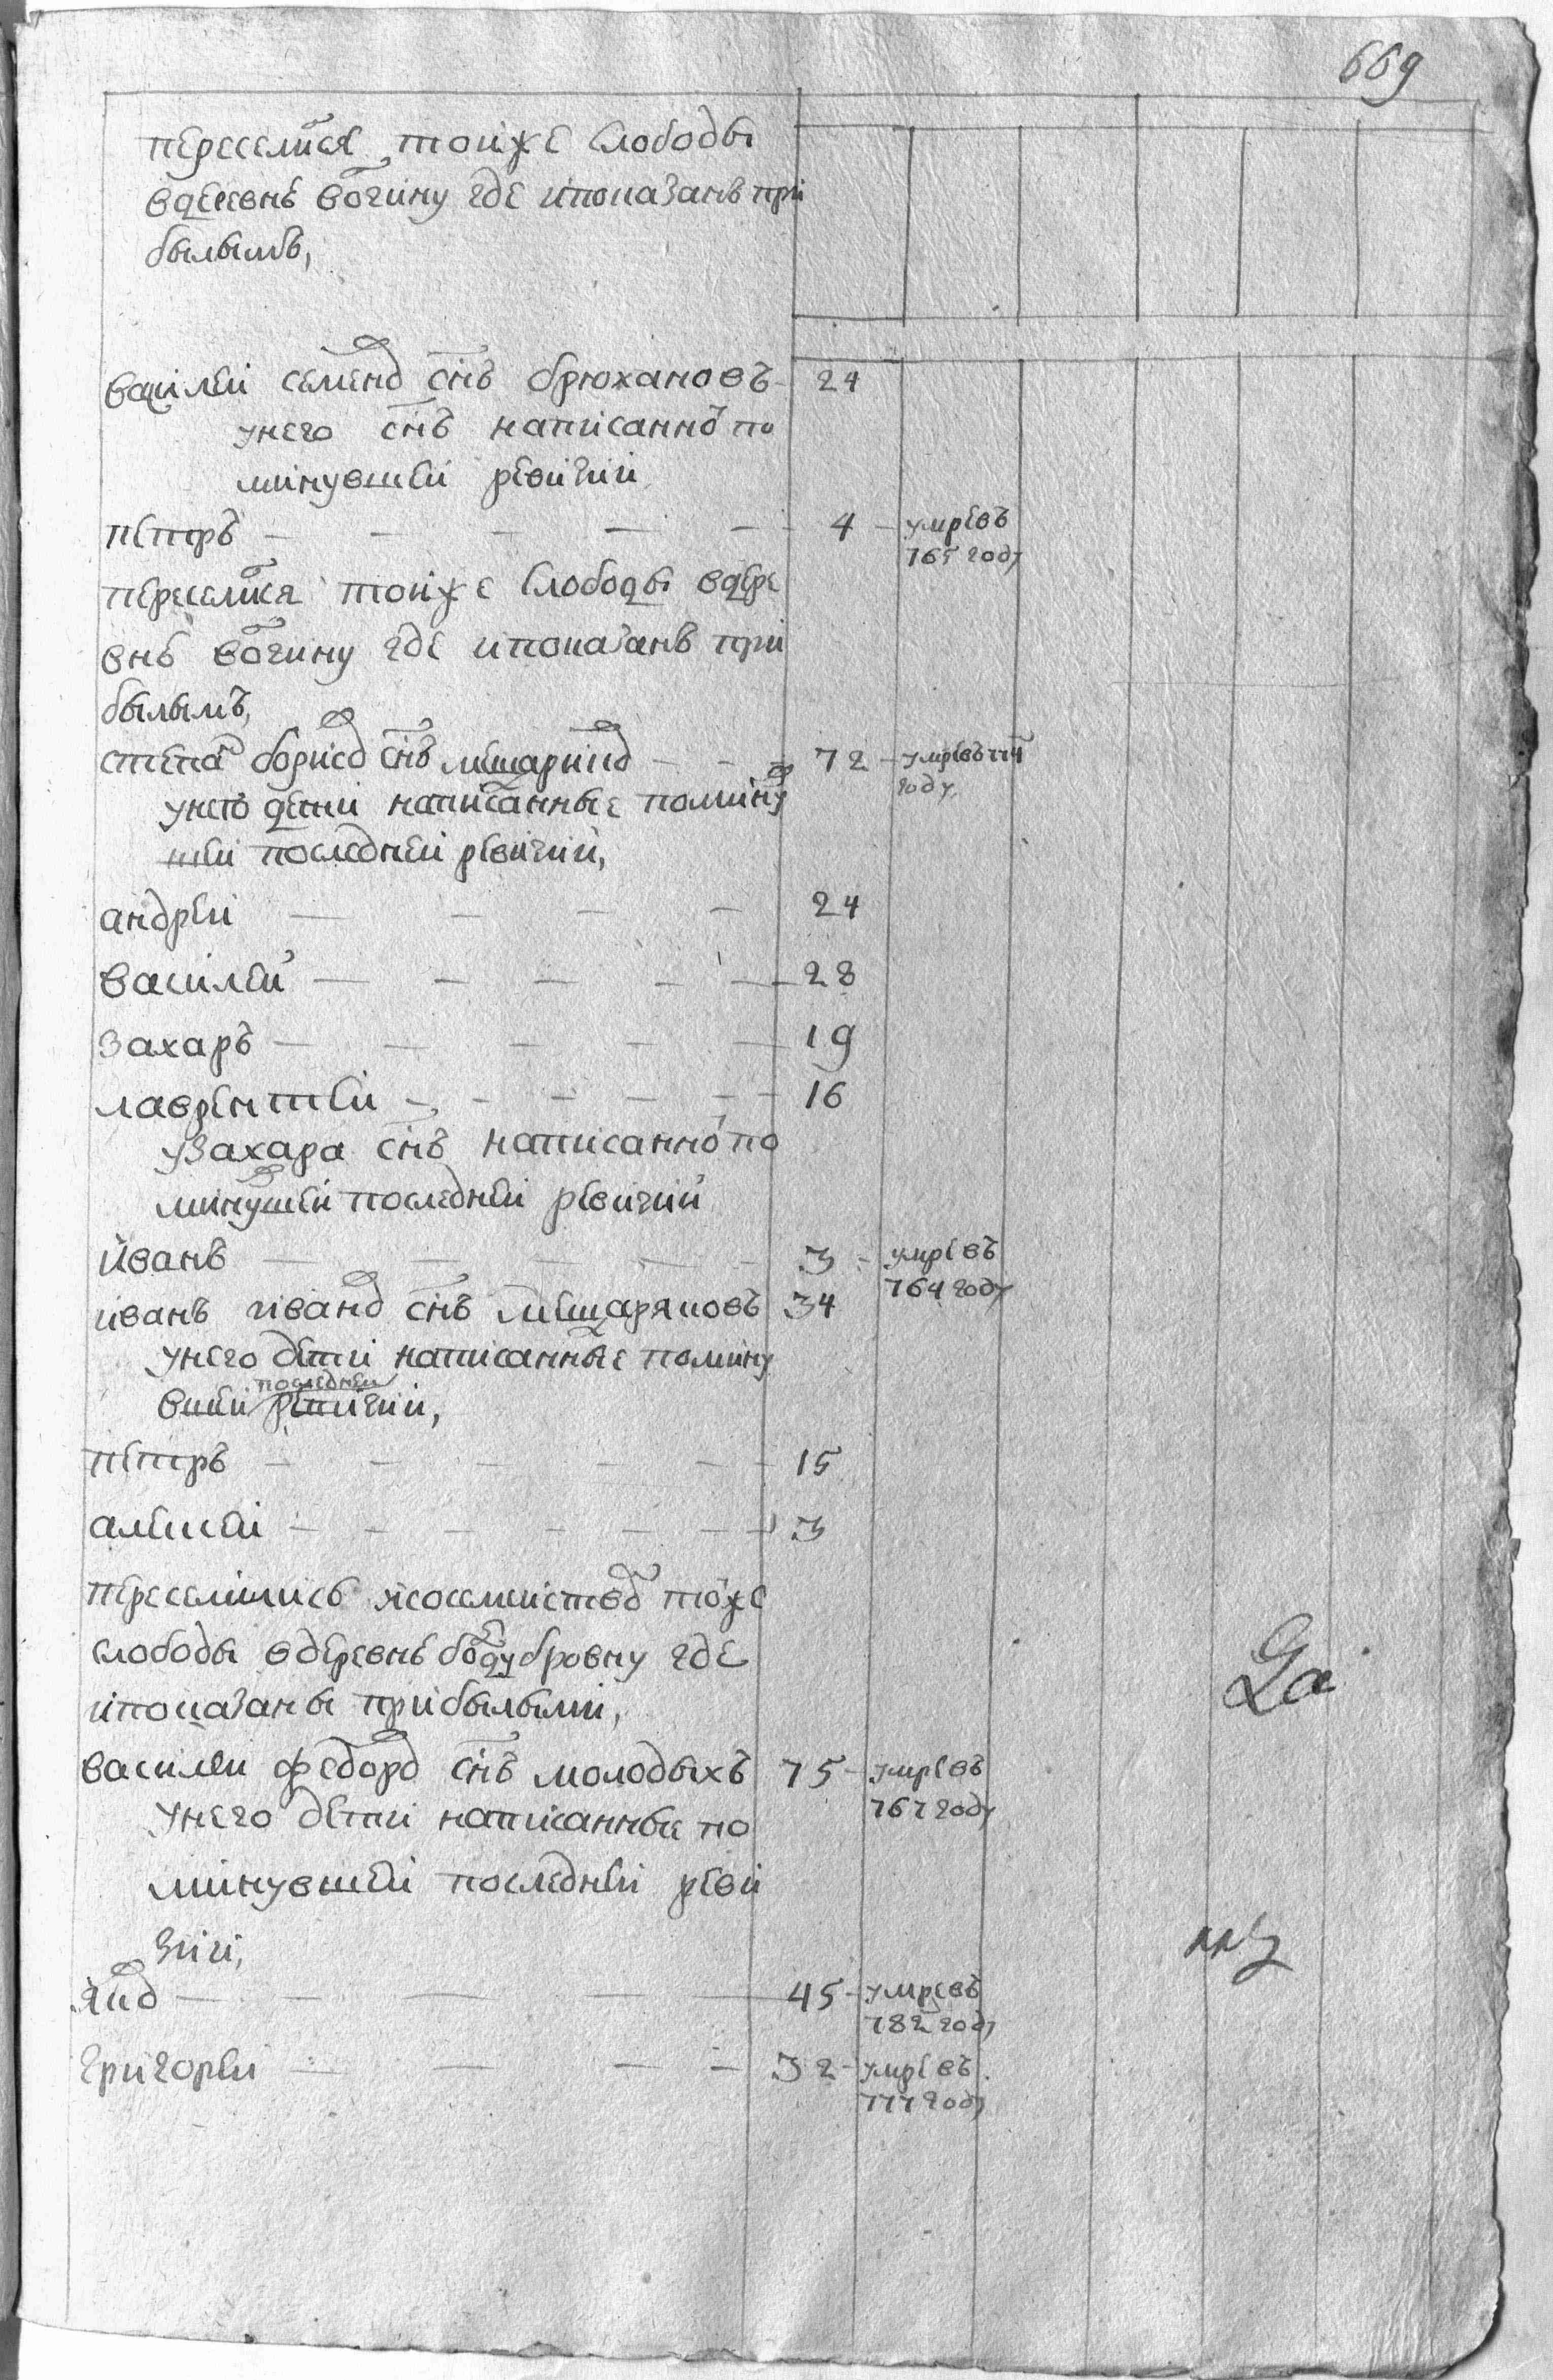 669
переселился тойже слободы
вдеревнѣ вочину где ипоказанъ при
былымъ,
василей семеновъ снъ брюхановъ 24
унего снъ написанной по
минувшей ревизии
петръ 4 умре въ
765 году
переселился тойже слободы вдере
внѣ вочину где ипоказанъ при
былымъ,
степанъ борисовъ снъ мещаряковъ 72 умре въ
году
унего дети написанные поминув
шей последней ревизии,
андрей 24
василей 28
захаръ 19
лаврентей 16
узахара снъ написанной по
минувшей последней ревизии
иванъ 3 умре въ
764 году
иванъ ивановъ снъ мещаряковъ 34
унего дети написанные помину
вшей последней ревизии,
петръ 15
алексей 3
переселились ясосемействомъ тойже
слободы вдеревнѣ дубровну где
ипоказаны прибылыми,
василей федоровъ снъ молодыхъ 75 умре въ
767 году
унего дети написанные по
минувшей последней реви
зии,
яковъ 45 умре въ
782 году
григорей 32 умре въ
777 году